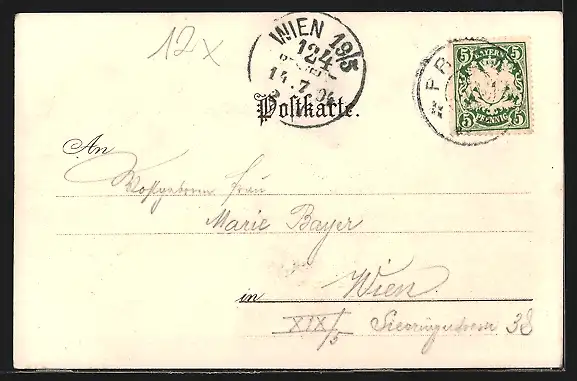 12x
WIEN 19/5
124
14.7.04
BAYERN
5 5
5 5
PFENNIG
Postkarte.
An
Wohlgeboren Frau
Marie Bayer
in Wien
XIX/5 Sieveringerstrasse 38